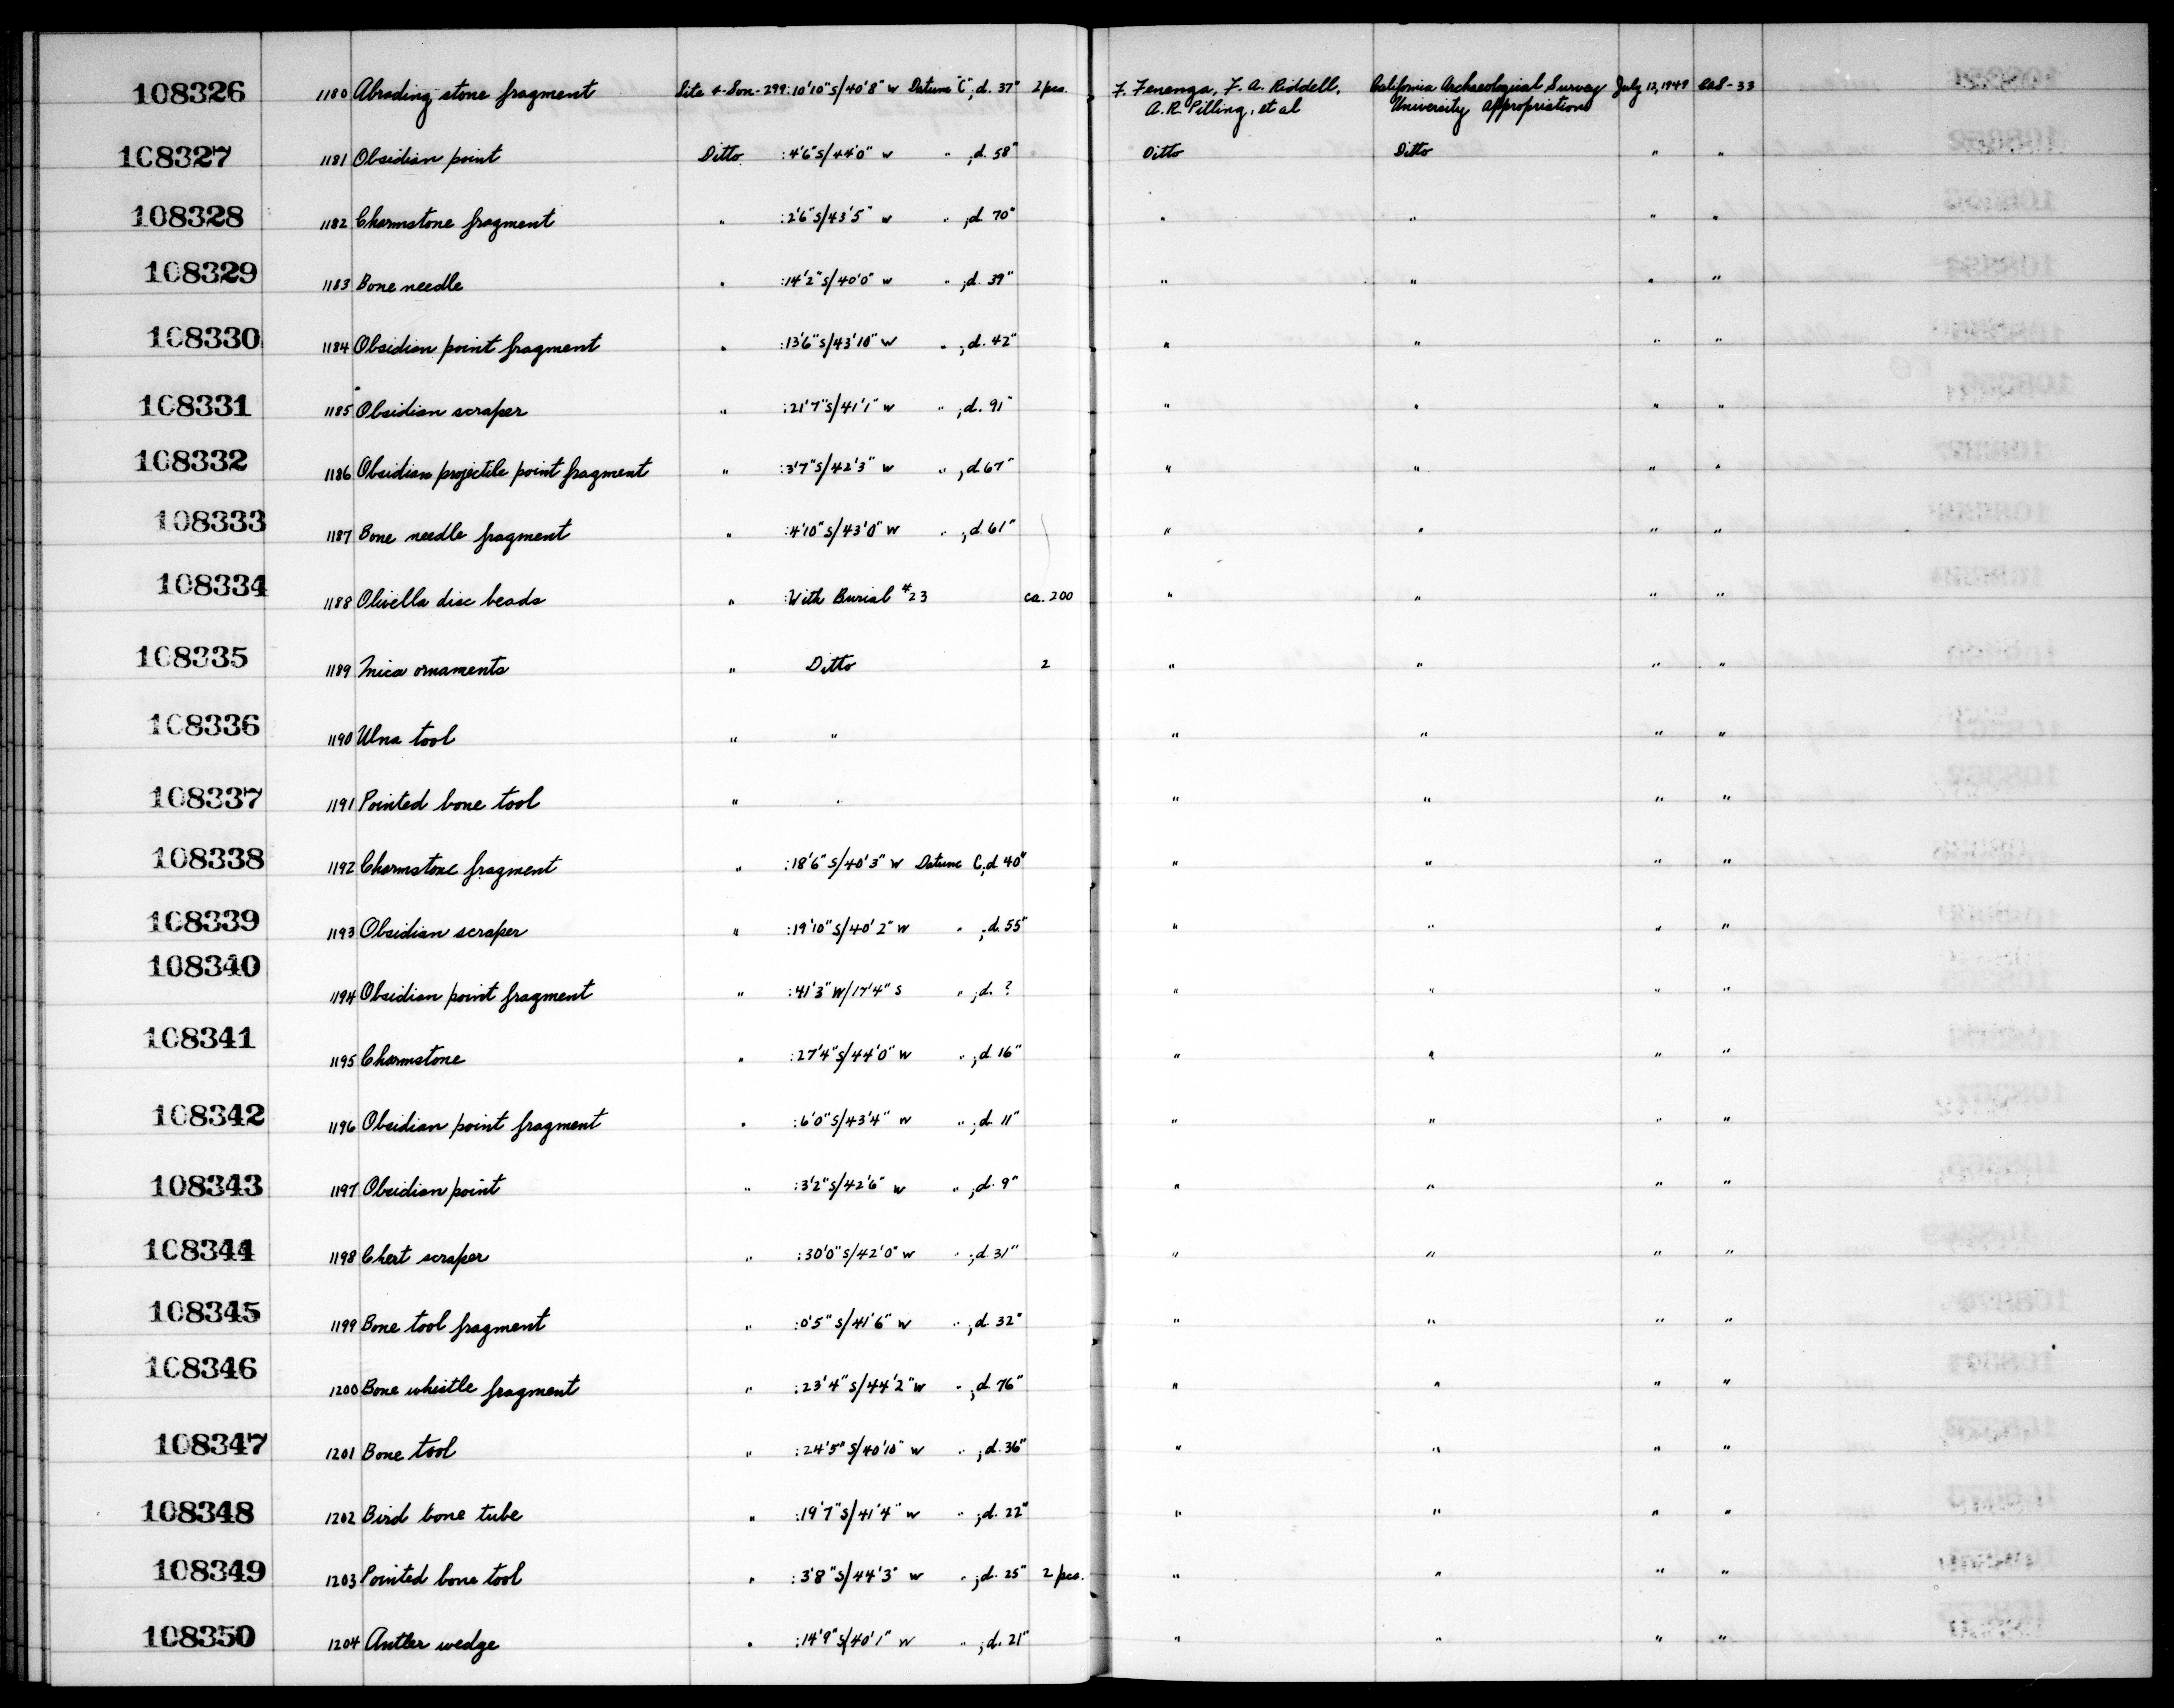 108326 1180 Abrading stone fragment Site 4-Son-299:10'10"S/40'8" W Datum "C", d. 37" 2 pcs. F. Fenenga, F. A. Riddell, California Archaeological Survey July 12, 1949 CAS-33
A. R. Pilling, et al University Appropriations
108327 1181 Obsidian point Ditto :4'6"S/44'0" W " ; d. 58" Ditto Ditto " "
108328 1182 Charmstone fragment " :2'6"S/43'5" W " ; d. 70" " " " "
108329 1183 Bone needle " :14'2"S/40'0" W " ; d. 39" " " " "
108330 1184 Obsidian point fragment " :13'6"S/43'10" W " ; d. 42" " " " "
108331 1185 Obsidian scraper " :21'7"S/41'1" W " ; d. 91" " " " "
108332 1186 Obsidian projectile point fragment " :3'7"S/42'3" W " ; d 67" " " " "
108333 1187 Bone needle fragment " :4'10"S/43'0" W " ; d. 61" " " " "
108334 1188 Olivella disc beads " :With Burial #23 ca. 200 " " " "
108335 1189 Mica ornaments " Ditto 2 " " " "
108336 1190 Ulna tool " " " " " "
108337 1191 Pointed bone tool " " " " " "
108338 1192 Charmstone fragment " :18'6"S/40'3" W Datum C; d 40" " " " "
108339 1193 Obsidian scraper " :19'10"S/40'2" W " ; d. 55" " " " "
108340 1194 Obsidian point fragment " :41'3"W/17'4" S " ; d. ? " " " "
108341 1195 Charmstone " :27'4"S/44'0" W " ; d 16" " " " "
108342 1196 Obsidian point fragment " :6'0"S/43'4" W " ; d. 11" " " " "
108343 1197 Obsidian point " :3'2"S/42'6" W " ; d. 9" " " " "
108344 1198 Chert scraper " :30'0"S/42'0" W " ; d. 31" " " " "
108345 1199 Bone tool fragment " :0'5"S/41'6" W " ; d. 32" " " " "
108346 1200 Bone whistle fragment " :23'4"S/44'2"W " ; d. 76" " " " "
108347 1201 Bone tool " :24'5"S/40'10" W " ; d. 36" " " " "
108348 1202 Bird bone tube " :19'7"S/41'4" W " ; d. 22" " " " "
108349 1203 Pointed bone tool " :3'8"S/44'3" W " ; d. 25" 2 pcs. " " " "
108350 1204 Antler wedge " :14'9"S/40'1" W " ; d. 21" " " " "